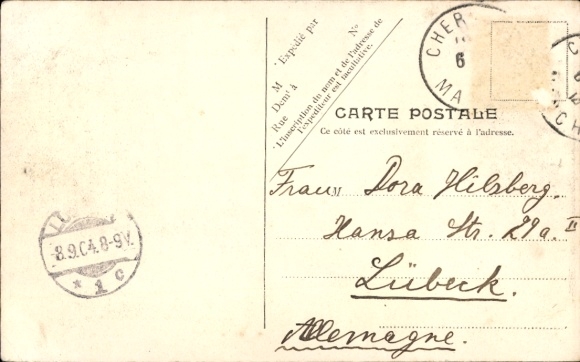 Expédié par
M N°
Dem<sup>t</sup> à
Rue
L'inscription du nom et de l'adresse de
l'expéditeur est facultative.
CARTE POSTALE
Ce côté est exclusivement réservé à l'adresse.
CHER
6
MA
CH
Frau M Dora Hilsberg.
Hansa Str. 29a. II
Lübeck.
Allemagne.
8.9.04.8-9V.
* 1 c